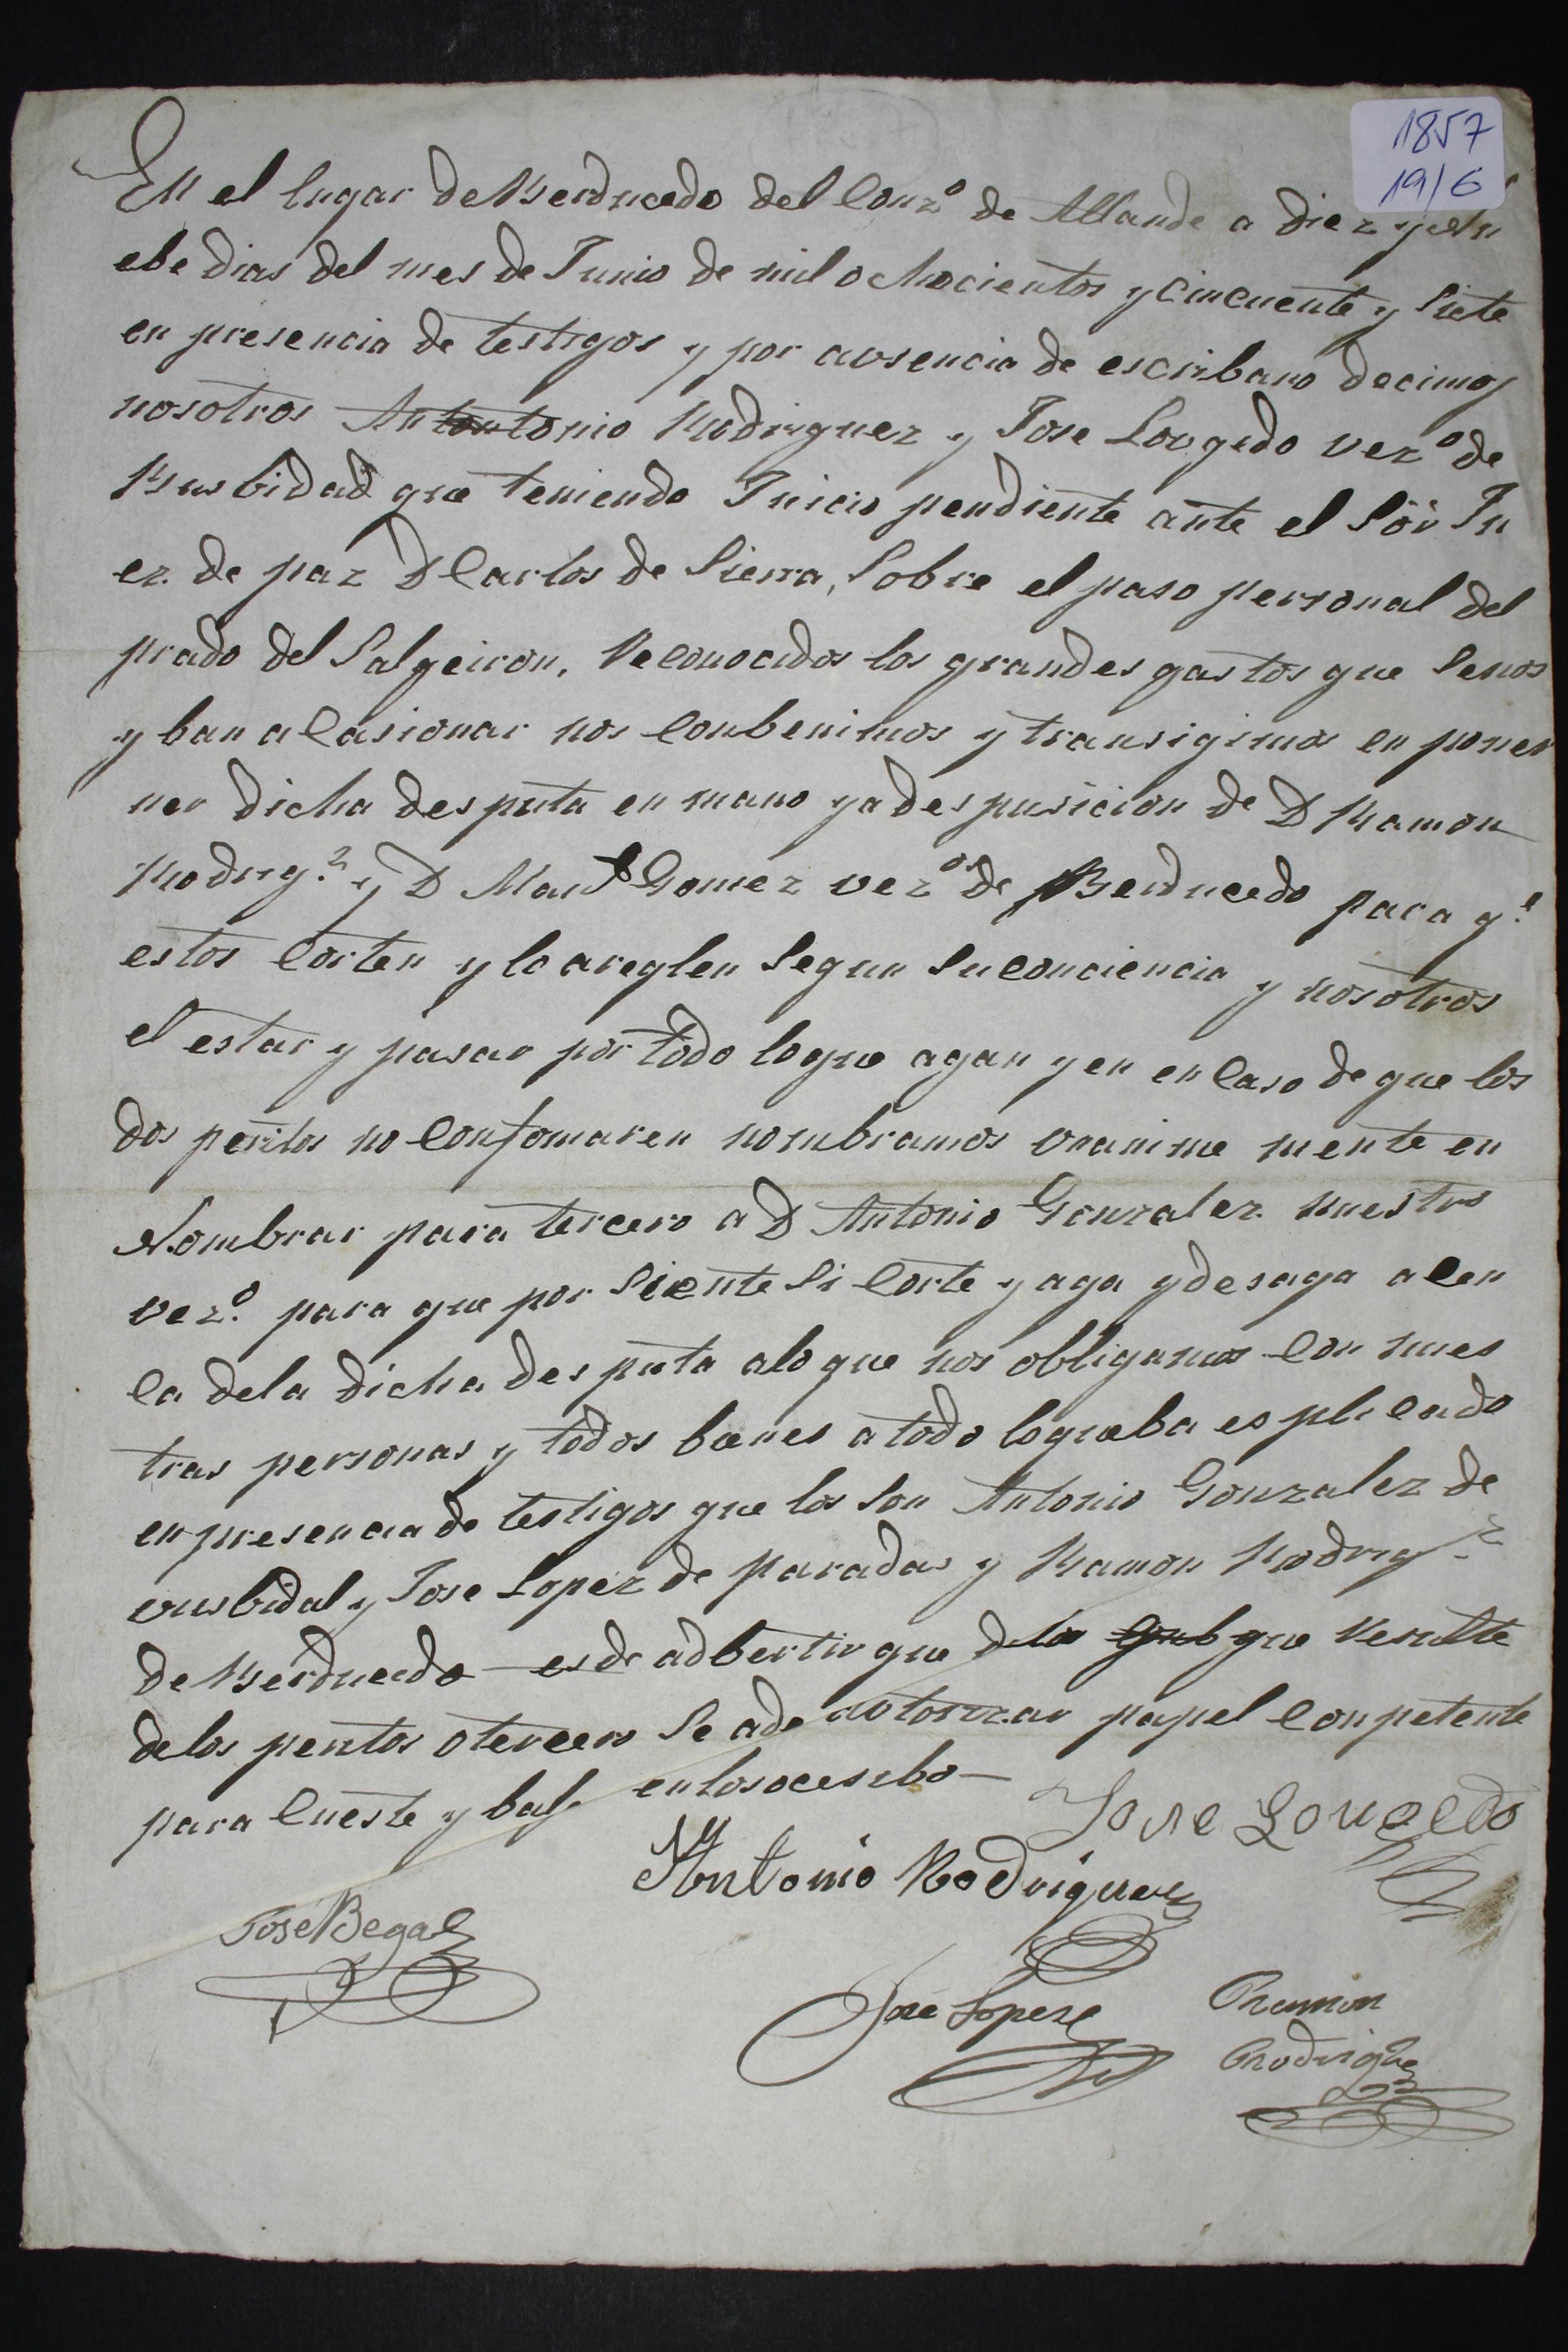 1857
19/6
En el lugar de Berducedo del Conzº de Allande a diez y nu
ebe dias del mes de Junio de mil ochocientos y cincuente y siete
en presencia de testigos y por ausencia de escribano decimos
nosotros Antontonio Rodriguez y Jose Lougedo vezº de
Busbidal que teniendo Juicio pendiente ante el Sör Ju
ez de paz D Carlos de Sierra, Sobre el paso personal del
prado del Salgeiron, Reconocidos los grandes gastos que Senos
yban a Casionar nos Conbenimos y transigimos en poner
ner dicha desputa en mano ya despusicion de D Ramon
Rodrigz y D Manl Gomez vezos de Berducedo para qe
estos Corten y lo areglen Segun Su conciencia y nosotros
el estar y pasar por todo loque agan y en en Caso de que los
dos peritos no Confomaren nombramos vnanime mente en
Nombrar para tercero a D Antonio Gonzalez nuestro
vezº para que por Siente Si Corte y aga y desaga acen
ca dela dicha desputa alo que nos obligamos Con nues
tras personas y todos bienes a todo loqueba esplicado
en presencia de testigos que los Son Antonio Gonzalez de
busbidal y Jose Lopez de paradas y Ramon Rodrigz
de Berducedo es de adbertir que dela que Resulte
delos peritos o tercero Se ade autorizar papel Conpetente
para Cueste y balga enlosocesibo
Jose Lougedo
Antonio Rodriguez
José Begal
Jose Lopez
Ramon
Rodriguez